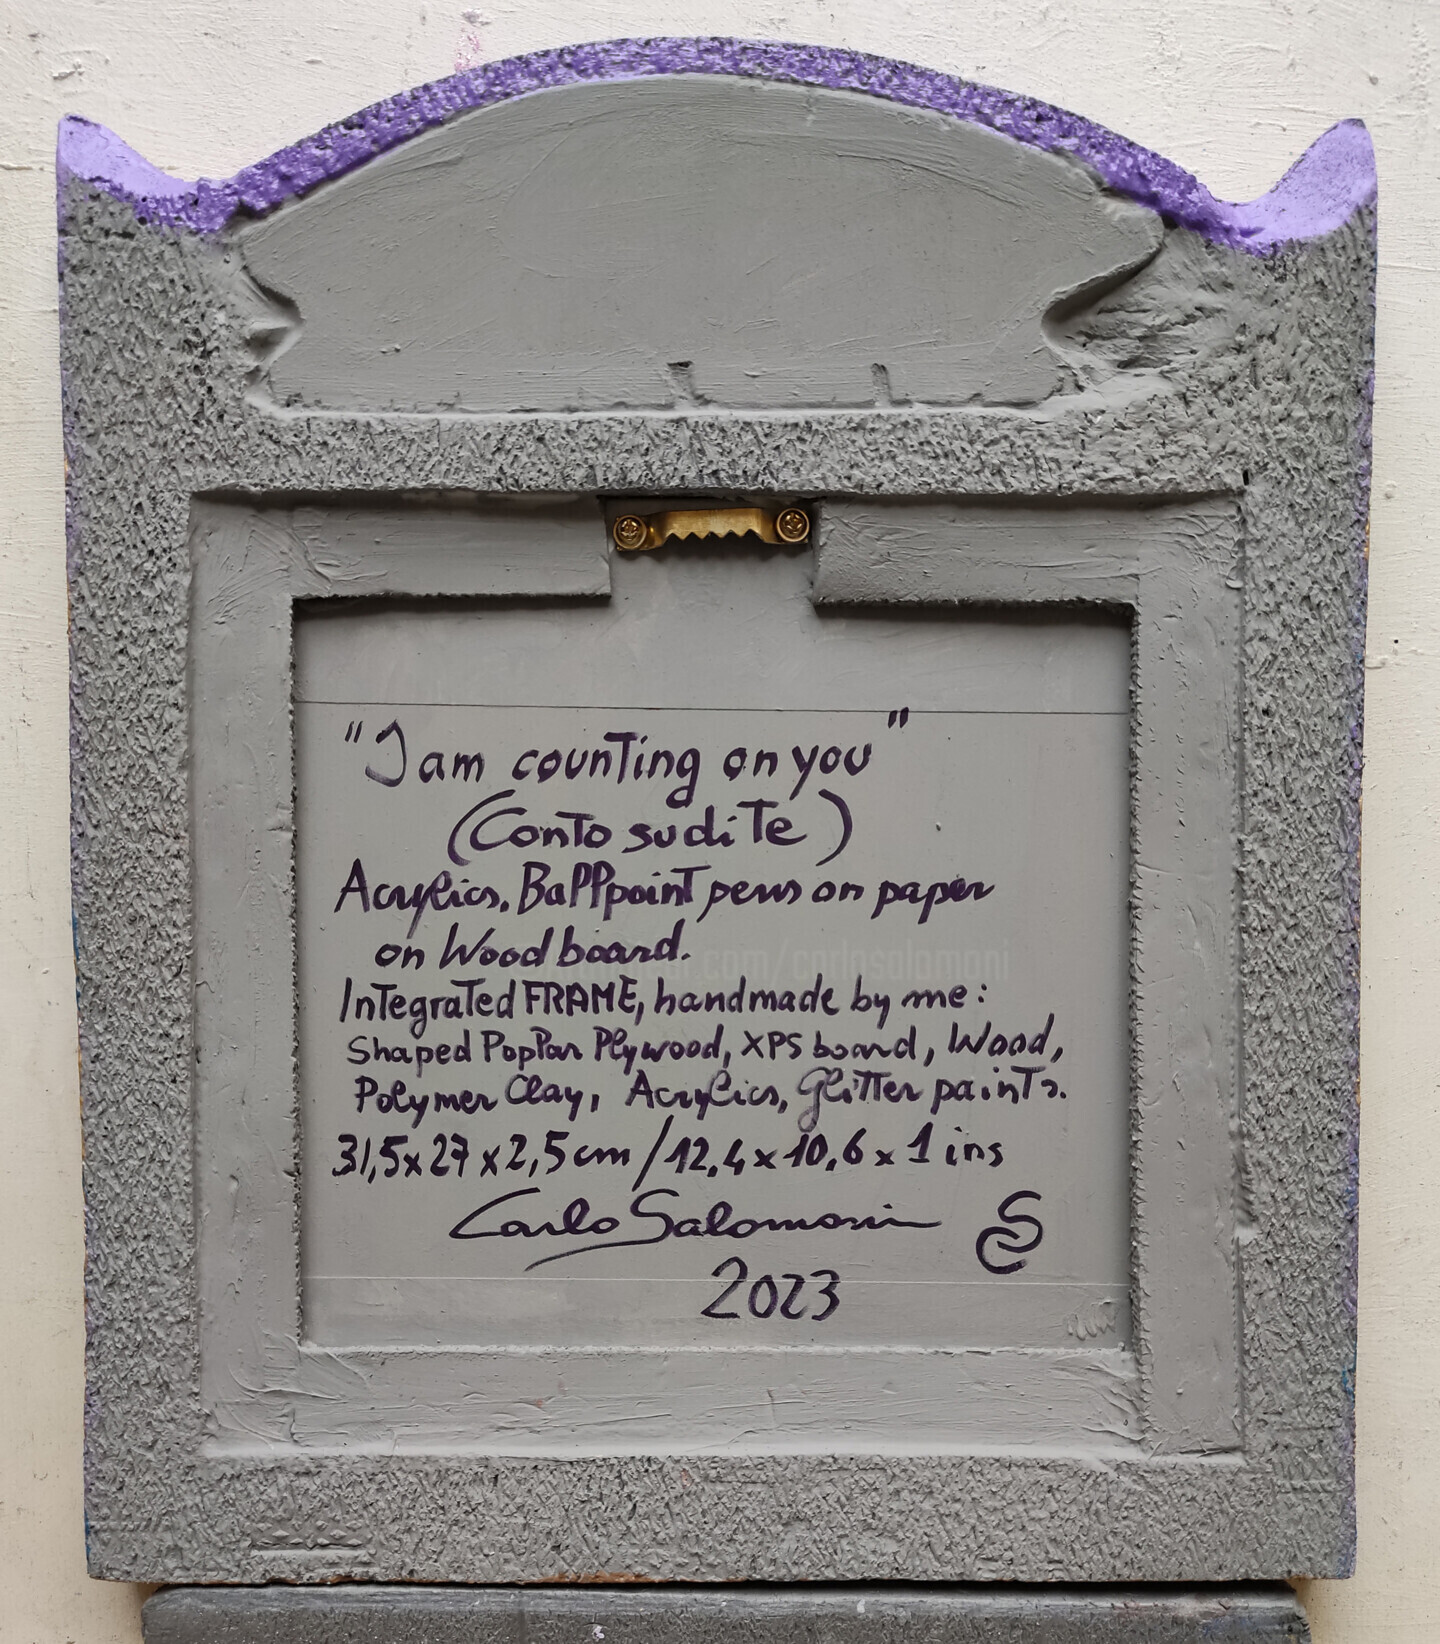 "I am counting on you"
(Conto su di te)
Acrylics, Ballpoint pens on paper
on Wood board.
Integrated FRAME, handmade by me:
Shaped Poplar Plywood, XPS board, Wood,
Polymer Clay, Acrylics, Glitter paints.
31,5x27x2,5cm/12,4x10,6x1 ins
Carlo Salomoni
2023